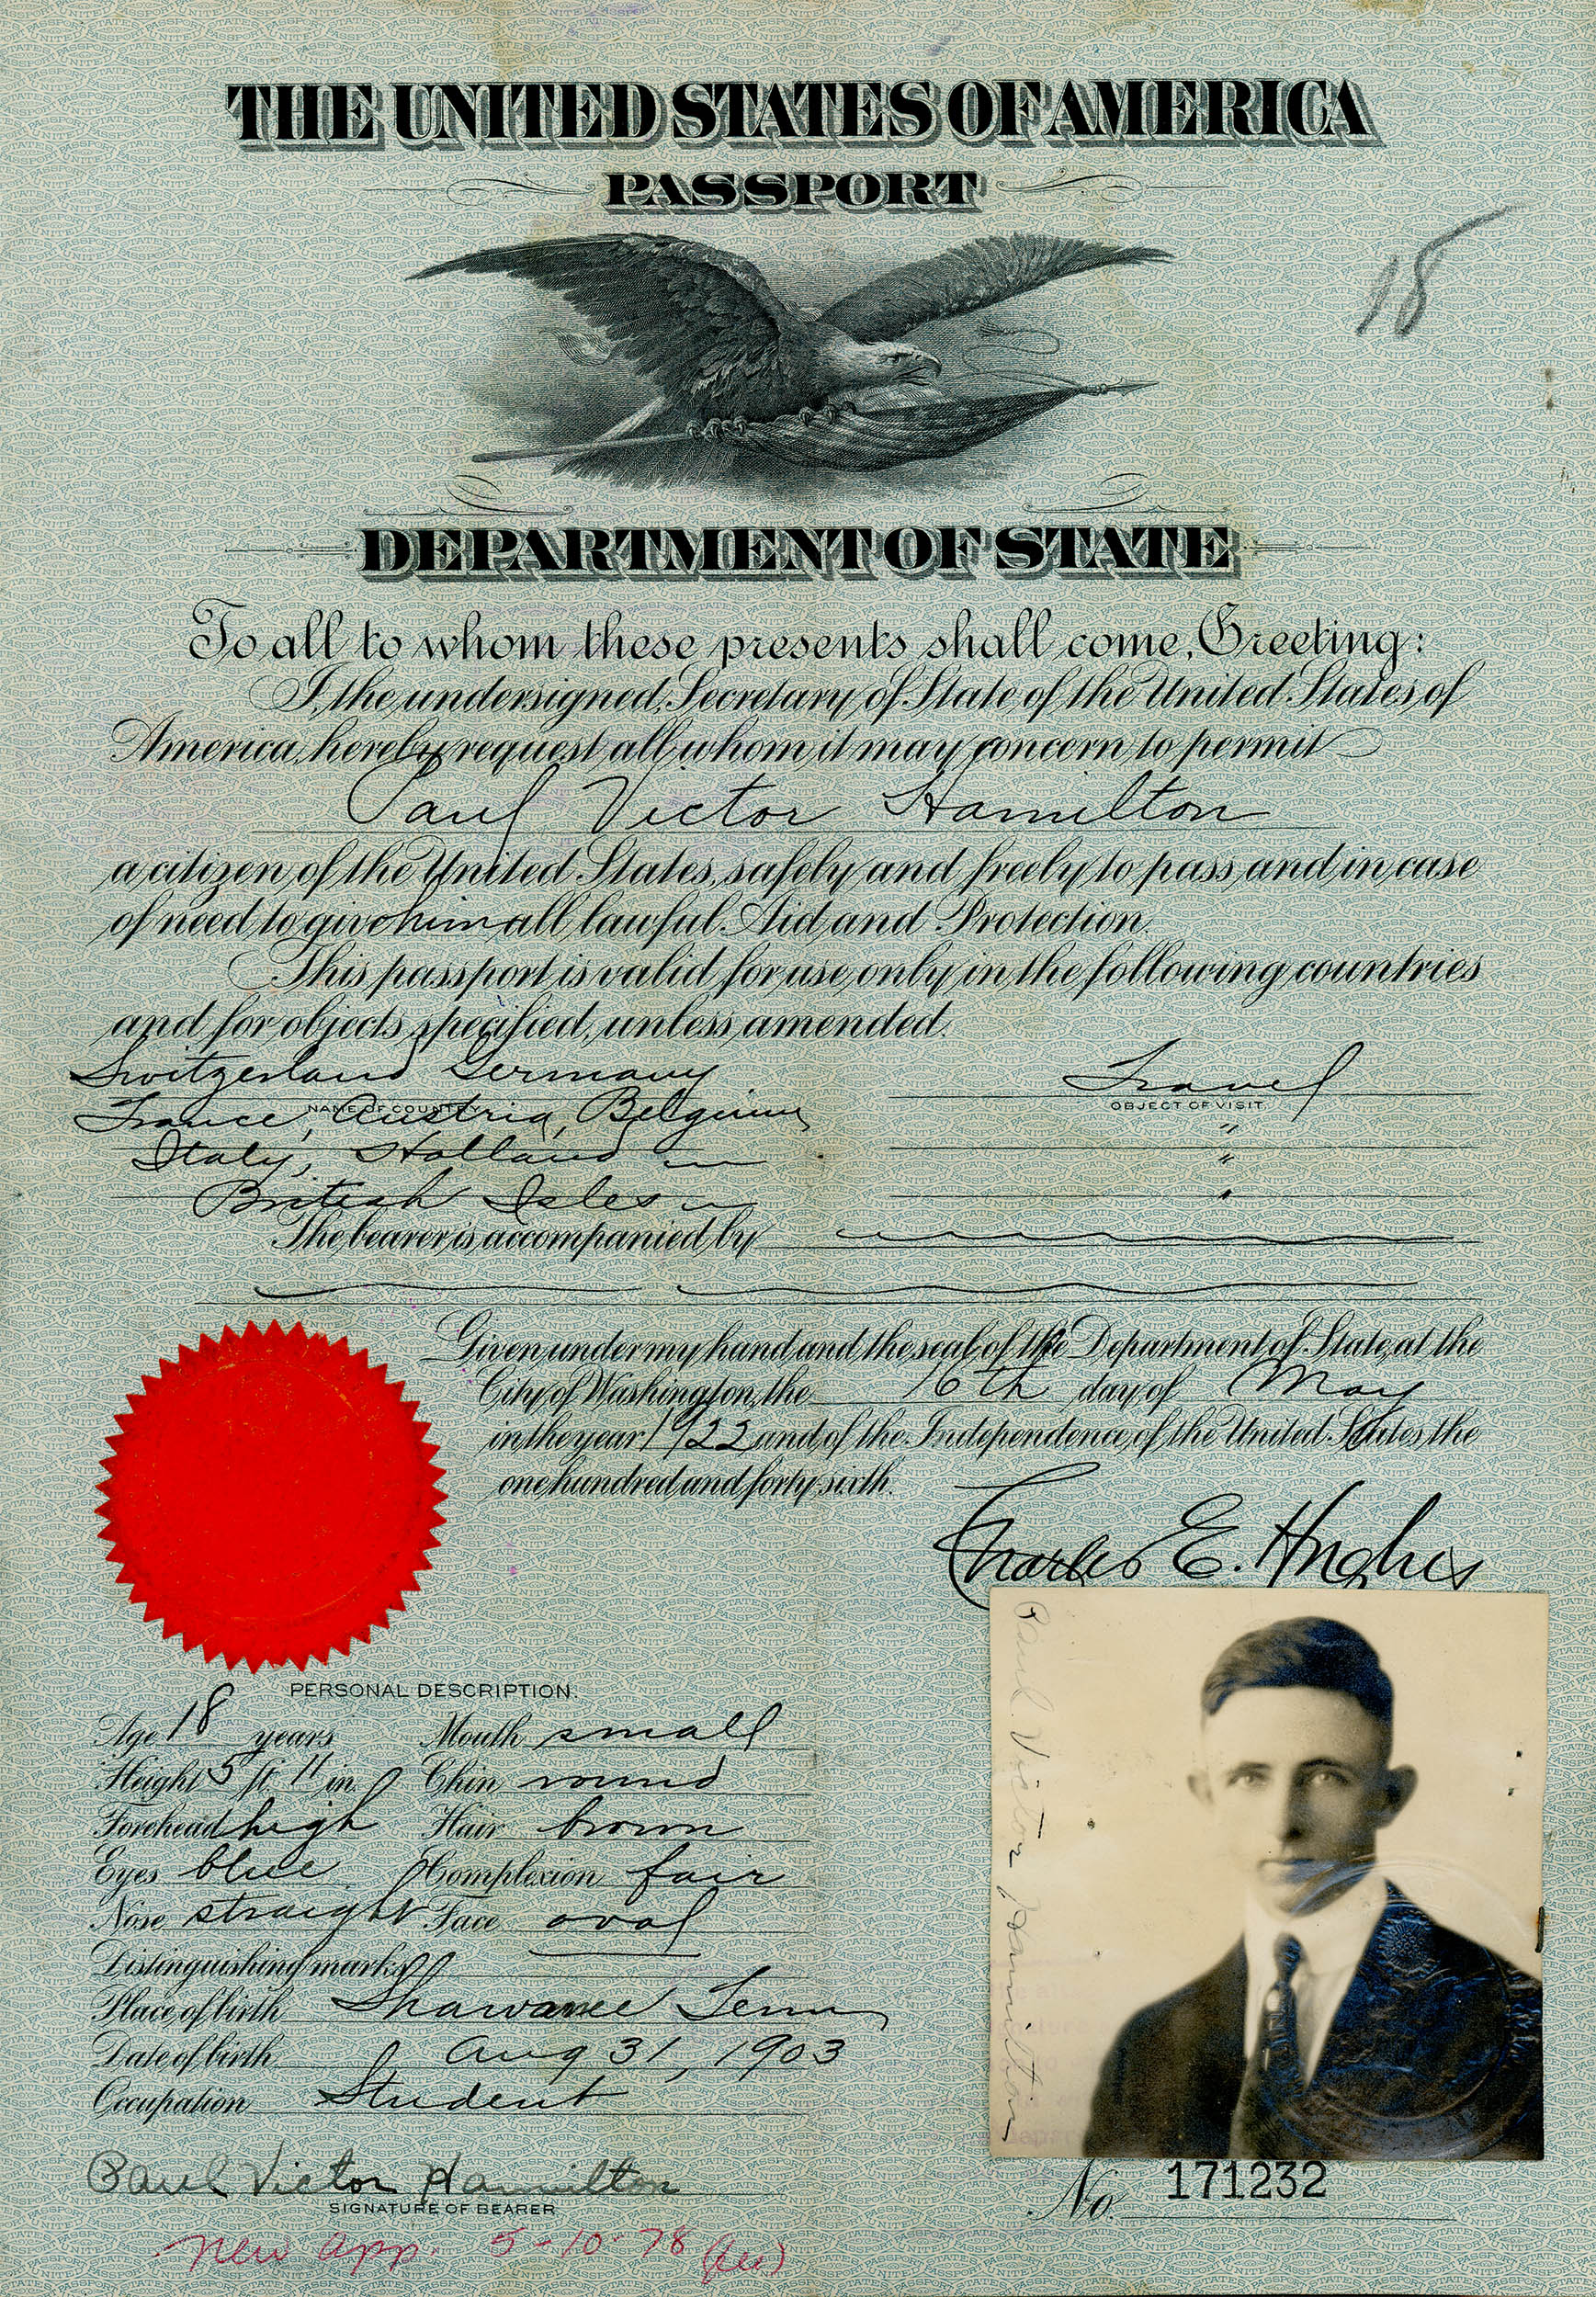 THE UNITED STATES OF AMERICA
PASSPORT
18
DEPARTMENT OF STATE
To all to whom these presents shall come, Greeting:
I, the undersigned, Secretary of State of the United States of
America, hereby request all whom it may concern to permit
Paul Victor Hamilton
a citizen of the United States, safely and freely to pass and in case
of need to give him all lawful Aid and Protection.
This passport is valid for use only in the following countries
and for objects specified, unless amended.
Switzerland Germany Travel
NAME OF COUNTRY OBJECT OF VISIT
France, Austria, Belgium, "
Italy, Holland "
British Isles "
The bearer is accompanied by
Given under my hand and the seal of the Department of State, at the
City of Washington, the 16th day of May
in the year 1922 and of the Independence of the United States the
one hundred and forty sixth.
Charles E. Hughes
PERSONAL DESCRIPTION.
Age 18 years Mouth small
Height 5 ft. 11 in. Chin round
Forehead high Hair brown
Eyes blue Complexion fair
Nose straight Face oval
Distinguishing marks
Place of birth Shawanee Tenn
Date of birth Aug 31, 1903
Occupation Student
Paul Victor Hamilton
SIGNATURE OF BEARER
new app. 5-10-78
Paul Victor Hamilton
No. 171232